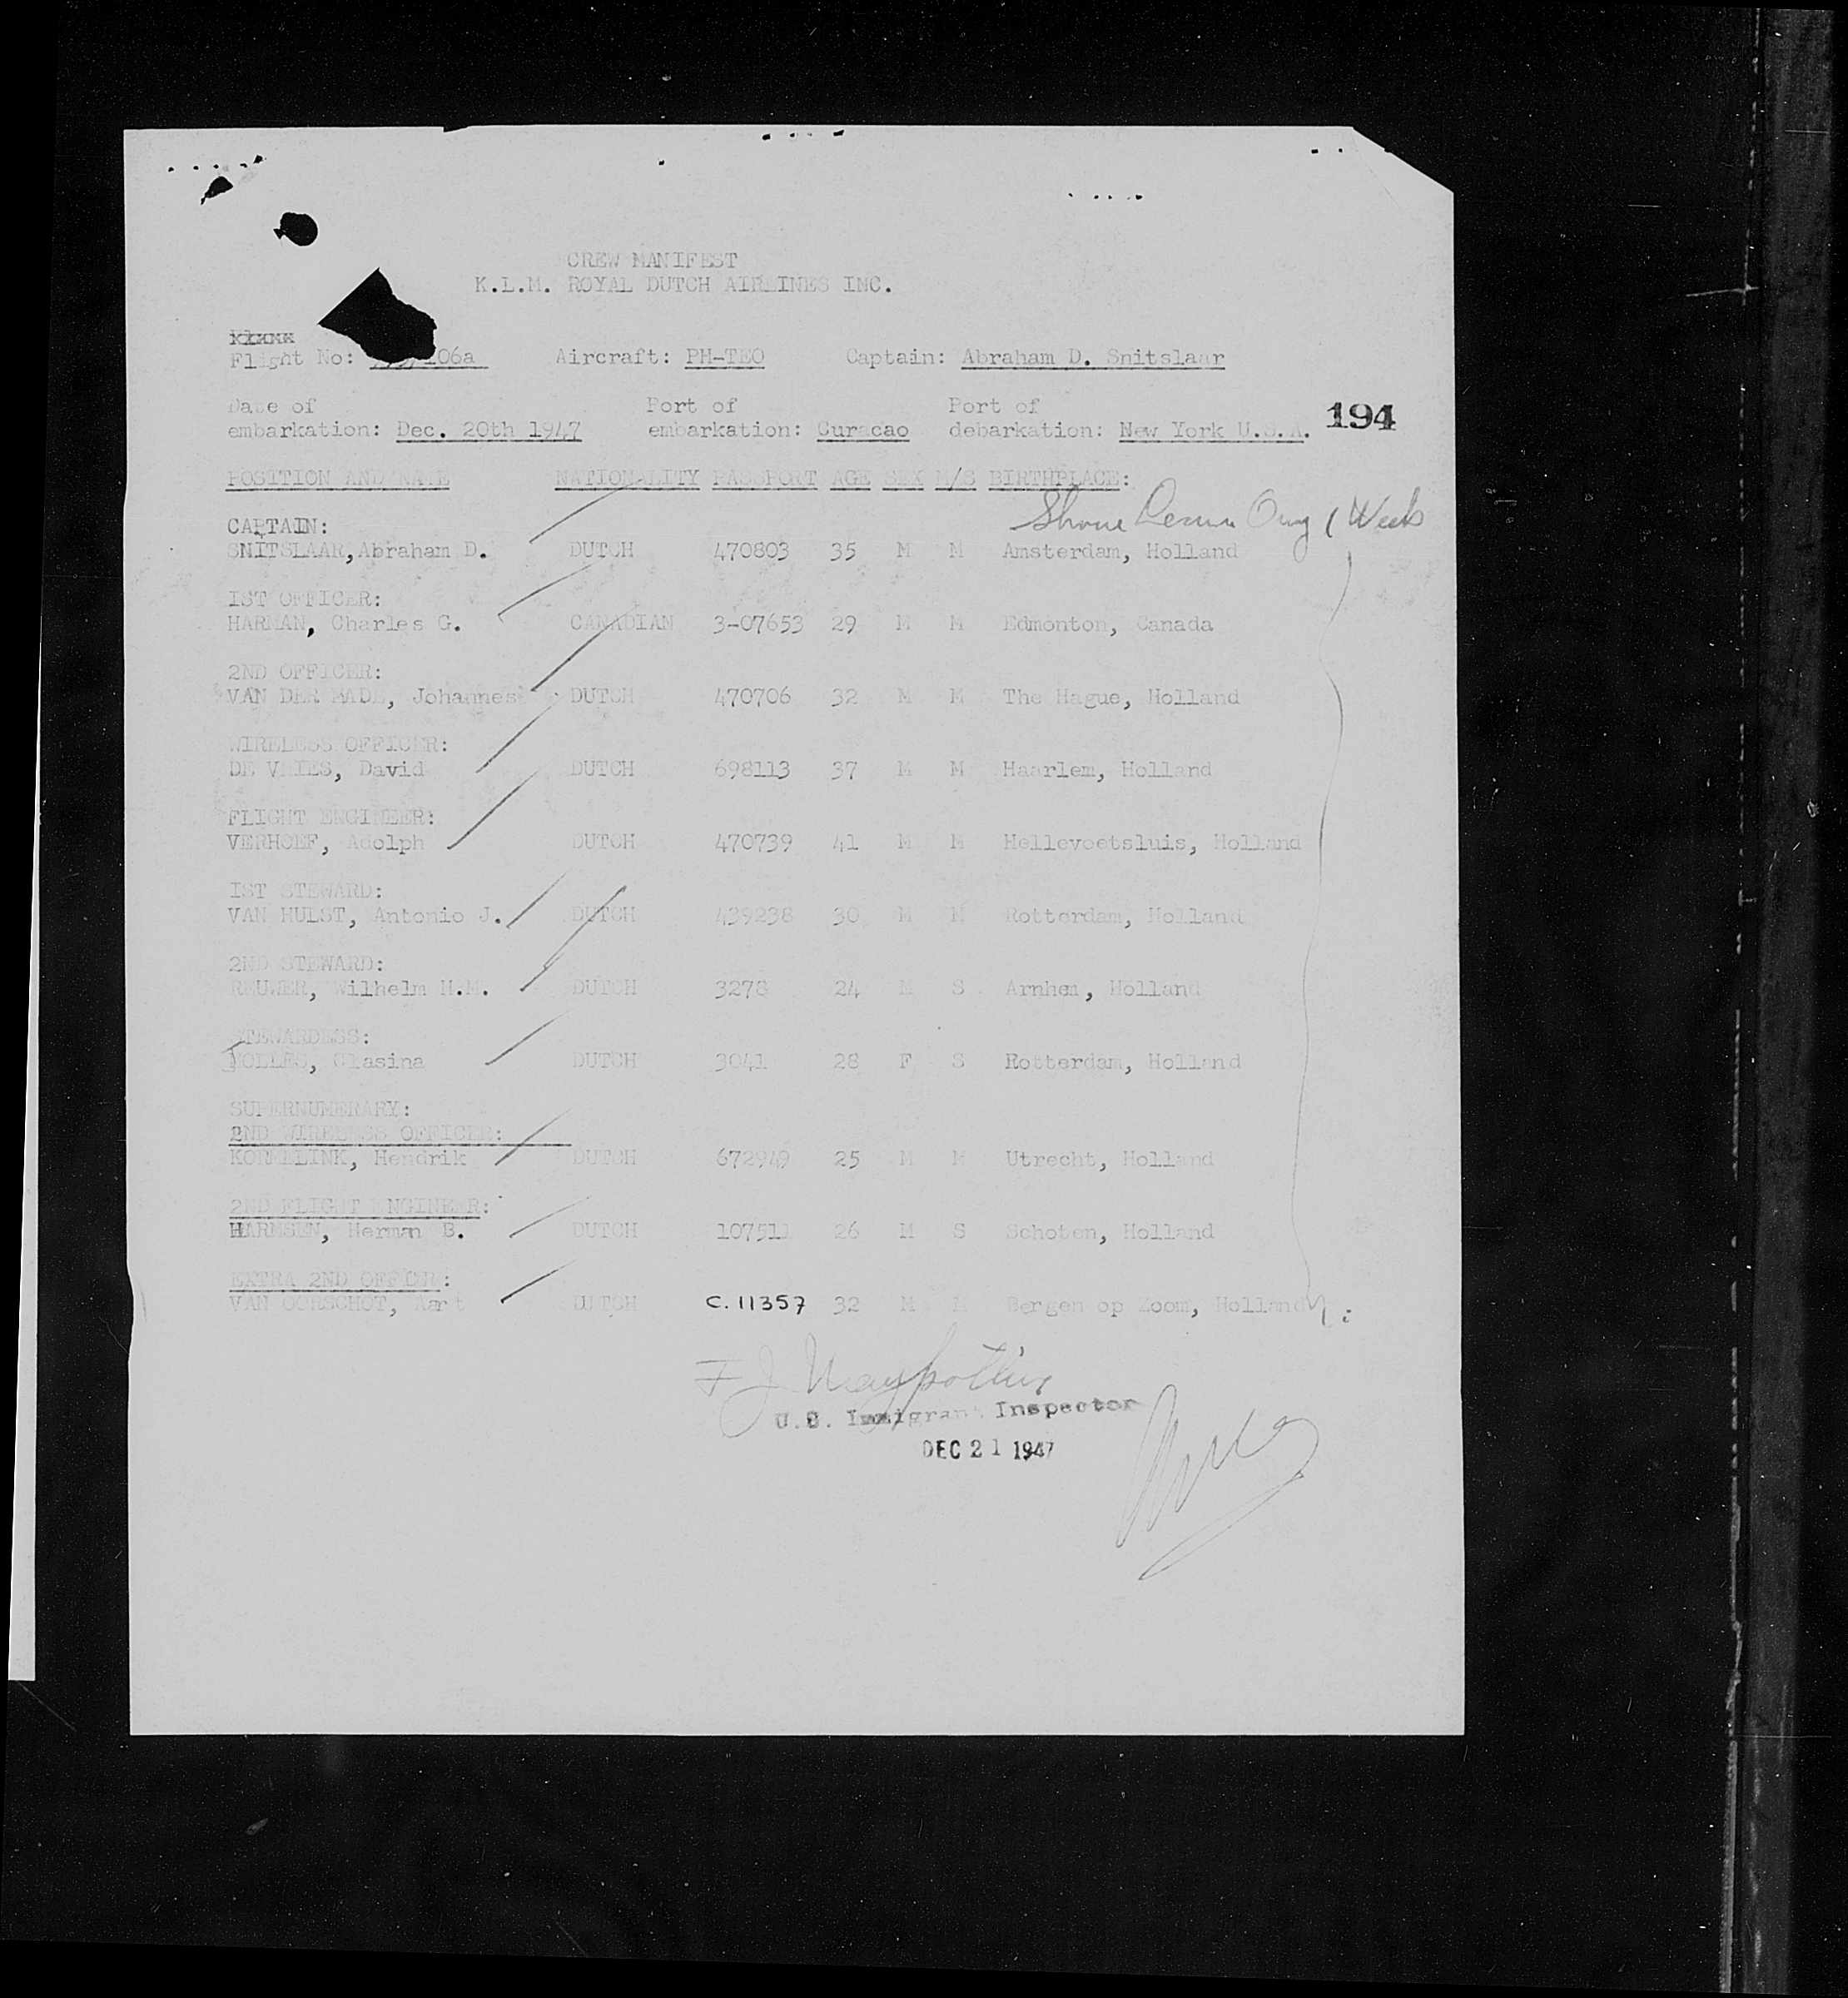 CREW MANIFEST
K.L.M. ROYAL DUTCH AIRLINES INC.
Flight No: 106a Aircraft: PH-TEO Captain: Abraham D. Snitslaar
Date of Port of Port of
embarkation: Dec. 20th 1947 embarkation: Curacao debarkation: New York U.S.A. 194
POSITION AND NAME NATIONALITY PASSPORT AGE SEX M/S BIRTHPLACE:
CAPTAIN: Shore Leave Only 1 Week
SNITSLAAR,Abraham D. DUTCH 470803 35 M M Amsterdam, Holland
IST OFFICER:
HARMAN, Charles G. CANADIAN 3-07653 29 M M Edmonton, Canada
2ND OFFICER:
VAN DER Johannes DUTCH 470706 32 M M The Hague, Holland
WIRELESS OFFICER:
DE VRIES, David DUTCH 698113 37 M M Haarlem, Holland
FLIGHT ENGINEER:
VERHOEF, Adolph DUTCH 470739 41 M M Hellevoetsluis, Holland
IST STEWARD:
VAN HULST, Antonio J. DUTCH 439238 30 M M Rotterdam, Holland
2ND STEWARD:
Wilhelm H.M. DUTCH 3278 24 M S Arnhem, Holland
STEWARDESS:
Clasina DUTCH 3041 28 F S Rotterdam, Holland
SUPERNUMERARY:
2ND WIRELESS OFFICER:
Hendrik DUTCH 672949 25 M M Utrecht, Holland
2ND FLIGHT ENGINEER:
HARMSEN, Herman B. DUTCH 107511 26 M S Schoten, Holland
EXTRA 2ND OFFICER:
VAN OORSCHOT, Aart DUTCH C. 11357 32 M M Bergen op Zoom, Holland
F J
U.S. Immigrant Inspector
DEC 21 1947